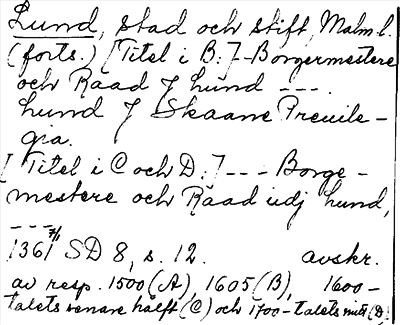 Lund, stad och stift, Malm.l.
(forts.) [Titel i B:]-Borgermestere
och Raad J Lund ---.
Lund J Skaane Preuile-
gia.
[Titel i C och D:] --- Borge-
mestere och Raad udj Lund,
---.
1361 7/1 SD 8, s. 12. avskr.
av resp. 1500 (A), 1605 (B), 1600-
talets senare hälft (C) och 1700-talets mitt (D)